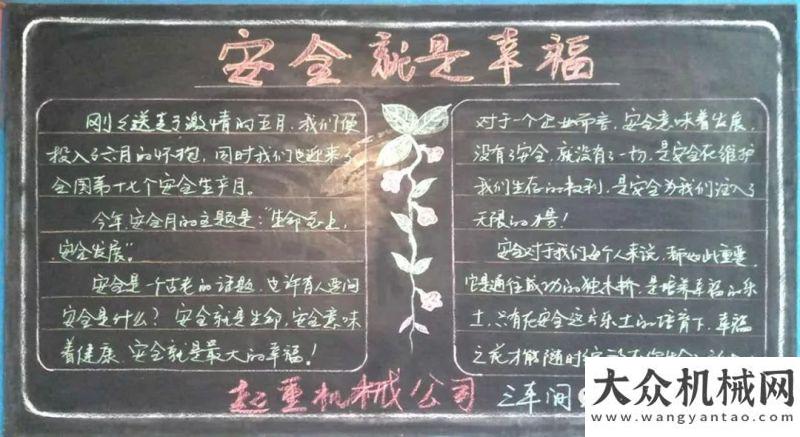 安全就是幸福
刚刚送走了激情的五月，我们便
投入了六月的怀抱，同时我们也迎来了
全国第十七个安全生产月。
今年，安全月的主题是：“生命至上，
安全发展”。
安全是一个古老的话题，也许有人要问
安全是什么？安全就是生命，安全意味
着健康，安全就是最大的幸福！
对于一个企业而言，安全意味着发展，
没有了安全，就没有了一切，是安全在维护
我们生存的权利，是安全为我们注入了
无限的
安全对于我们每个人来说，都如此重要，
它是通往成功的独木桥，是培养幸福的乐
土，只有在安全这片乐土的培育下，幸福
之花才能随时
起重机械公司 三车间
大众机械网
www.wangyantao.com